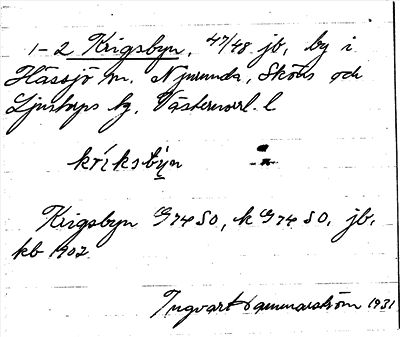 1-2 Krigsbyn, 47/48 jb, by i
Hässjö sn. Njurunda, Sköns och
Ljustorps tg, Västernorrl. l
kríksby̠n -"-
Krigsbyn G74 S0, k G74 S0, jb,
kb 1902
Ingvart Hammarström 1931